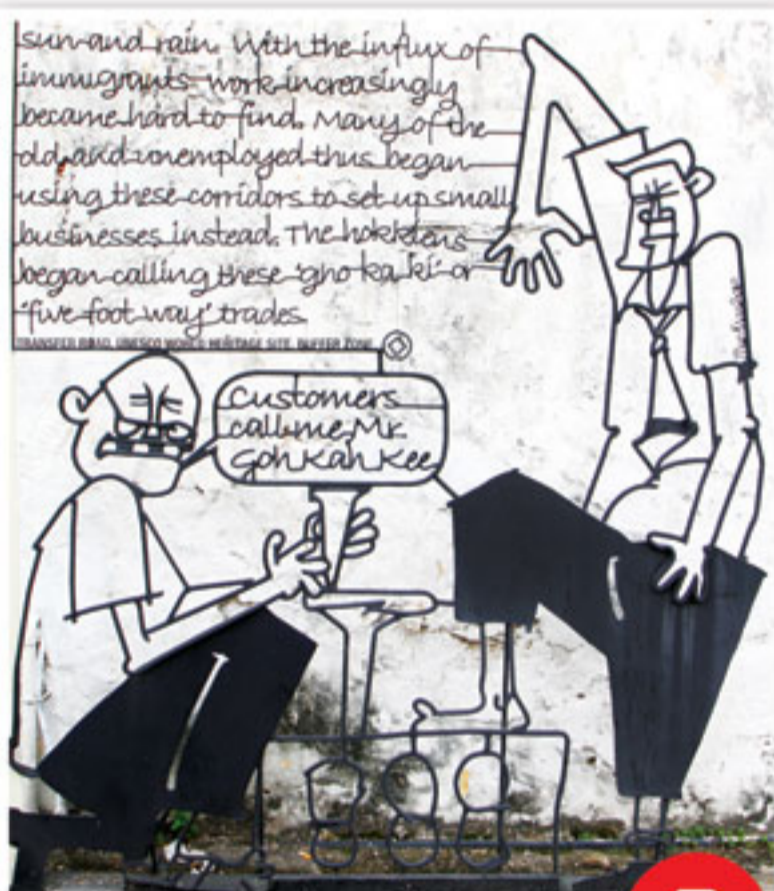 sun and rain. With the influx of
immigrants work increasingly
became hard to find. Many of the
old and unemployed thus began
using these corridors to set up small
businesses instead. The hokkiens
began calling these 'gho ka ki' or
'five foot way' trades.
TRANSFER ROAD, UNESCO WORLD HERITAGE SITE. BUFFER ZONE
Customers
call me Mr.
Goh Kah Kee